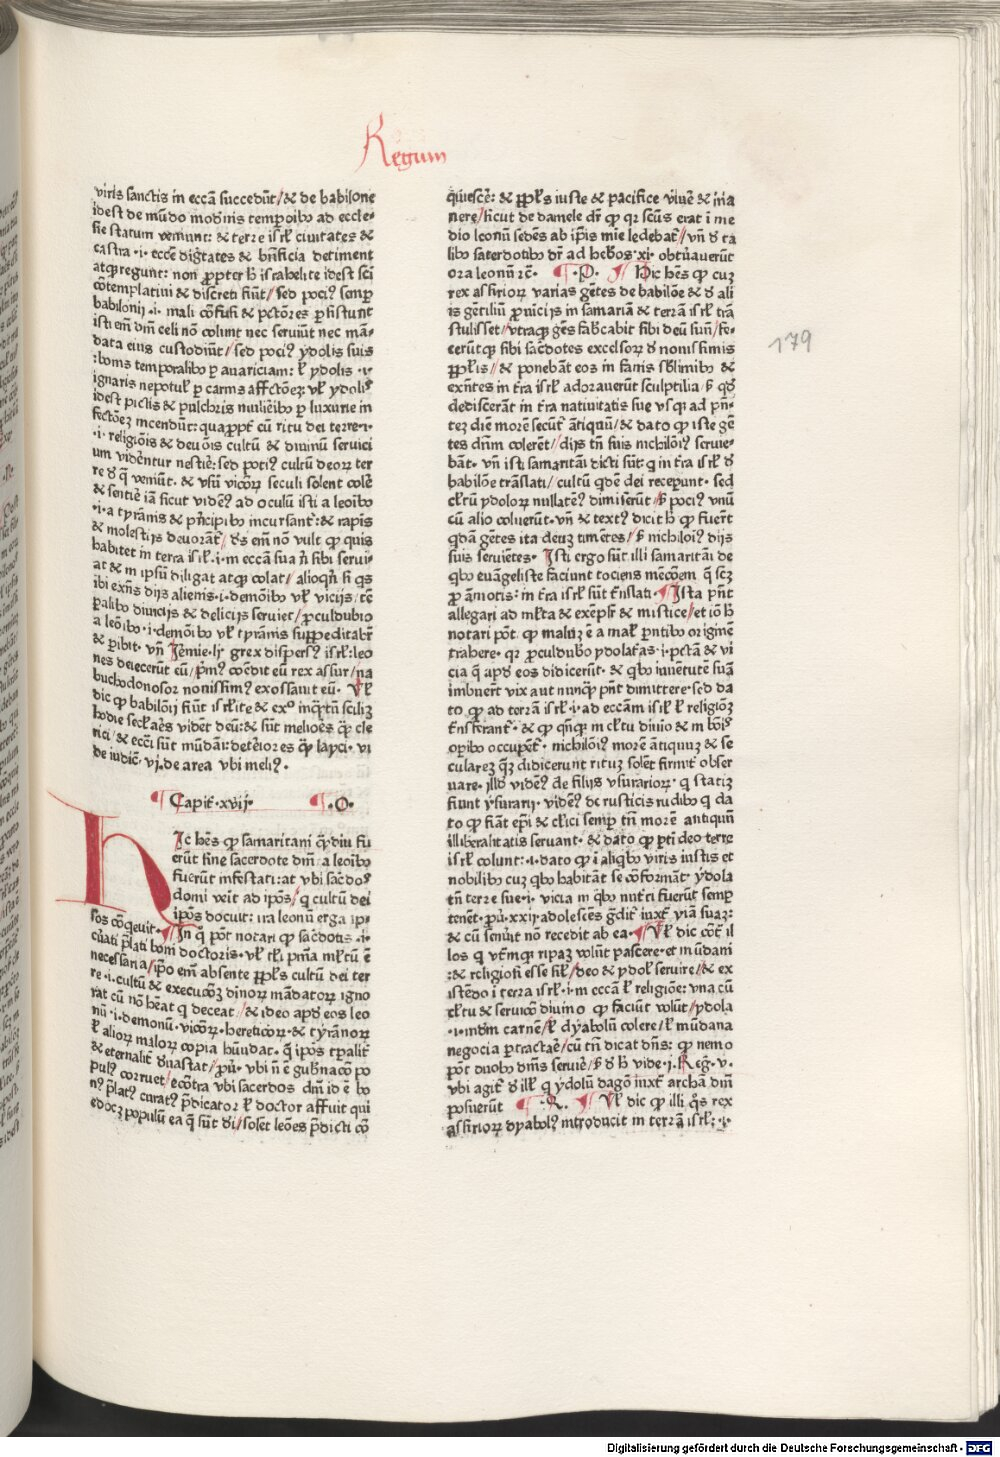 Regum
viris sanctis in eccā succedūt/ & de babilone
idest de mūdo modernis temporibꝰ ad eccle-
sie statum veniunt: & terre isrl̄ ciuitates &
castra ·i· eccē dig̅tates & bn̄ficia detiment
atq̄ regunt: non ꝓpter h̄ israhelite idest sc̄i
cōtemplatiui & discreti fiūt/ sed pociꝰ semꝑ
babilonij ·i· mali cōfusi & pctōres ꝑsistunt
isti em̄ dm̄ celi nō colunt nec seruiūt nec mā-
data eius custodiūt/ sed pociꝰ ydolis suis
:bonis temporalibꝰ ꝑ auariciam: ł ydolis ·i·
ignaris nepotul̓ ꝑ carnis affctōeȝ: vł ydoliſ
idest pictis & pulchris mulieribꝰ ꝑ luxurie in
fectōeȝ incendūt: quaꝓpt̓ cū ritu dei terre·i·
·i· religiōis & deuōis cultū & diuinū seruici
um videntur nescire: sed potiꝰ cultū deorꝝ ter
re ð q̄ veniūt· & vsū vicorꝝ seculi solent cole
& sentiē iā sicut videꝰ ad oculū isti a leoībꝰ
·i· a tyrānis & pn̄cipibꝰ incursant̓: & rapinis
& molestijs deuorāt̓/ ds̄ em̄ nō vult ꝙ quis
habitet in terra isrl̄·i·in eccā sua n̄ sibi serui-
at & in ipsū diligat atq̄ colat/ alioqn̄ si qs
ibi exn̄s dijs alienis·i·demōibꝰ vł vicijs: tē
ꝑalibꝰ diuicijs & delicijs seruiet/ ꝓculdubio
a leōibꝰ·i·demōibꝰ vł tyrānis suppeditabr̄
& ꝑibit· vn̄ Jēmie·lj· grex dispersꝰ isrl̄: leo
nes deiecerūt eū/ pͥmꝰ coēdit eū rex assur/ na
buchodonosor nouissimꝰ exossauit eū· Vł
dic ꝙ babilōij fiūt isrl̄ite & exͦ inc̄ꝑtū sciliȝ
hodie seclares vidēt deū: & sūt melioēs q̄ cle
rici/ & ecc̄i sūt mūdāi: deteriores q̄ layci· vi
de iudic̄· vj·de area vbi meliꝰ·
¶ Capit̓·xvij· ¶·O·
Hic hēs ꝙ samaritani q̄diu fu
erūt sine sacerdote dm̄: a leoībꝰ
fuerūt infestati: at vbi sac̄doſ
domi veīt ad ipōs/ q cultū dei
ipōs docuit: ira leonū erga ip-
sos cōq̄euit· ¶In q̄ pōt notari ꝙ sac̄dotis ·i·
cūati p̄lati boni doctoris· vł tl̄i pͥma mł̓tū ē
necessaria/ ipō em̄ absente ppl̄s cultū dei ter
re·i·cultū & execucōȝ diuorꝝ mādatorꝝ igno
rat cū nō hēat q deceat/ & ideo apd̓ eos leo
nū·i·demonū·vicorꝝ·hereticorꝝ·& tyrānorꝝ
ł aliorꝝ malorꝝ copia hūndat· q̄ ipōs tꝑalit̓
& eternalit̓ ðuastat/ ꝓuꝰ· vbi n̄ ē gub̓nacō po
pulꝰ corruet/ ecōtra vbi sacerdos dm̄ id ē bo
nꝰ p̄latꝰ curatꝰ p̄dicator ł doctor affuit qui
edocȝ populū ea q̄ sūt ði/ solet leōes p̄dicti cō
quiescē: & ppl̄s iuste & pacifice viuē & ma
nere/ sicut de daniele dr̄ ꝙ qr sc̄us erat i me
dio leonū sedēs ab ip̄is mīe ledebat̓/ vn̄ ð ta
libꝰ sacerdotibꝰ dr̄ ad hebͦos·xi· obtūauerūt
ora leonū rc̄· ¶·P· ¶Hic hēs ꝙ cuȝ
rex assiriorꝝ varias gētes de babilōe & ð ali
is gētiliū ꝓuīcijs in samariā & terrā isrl̄ trā
stulisset/ vtraqȝ gēs fab̓cabit sibi deū suū/ fe-
cerūtqȝ sibi sac̄dotes excelsorꝝ ð nouissimis
ppl̄is/ & ponebāt eos in fanis sb̓limibꝰ &
exn̄tes in t̓ra isrl̄ adorauerūt sculptilia/ ẜ qð
dediscerāt in t̓ra natiuitatis sue vsqȝ ad pn̄-
teȝ diem morē secūt̓ ātiquū/ & dato ꝙ iste gē
tes dn̄m colerēt/ dijs tn̄ suis nichilōiꝰ seruie-
bāt· vn̄ isti samaritāi dicti sūt q in t̓ra isrl̄ ð
babilōe trāslati/ cultū qdē dei receperunt· sed
cl̓tū ydolorꝝ nullatēꝰ dimiserūt/ ẜ pociꝰ vnū
cū alio coluerūt·vn̄ & textꝰ dicit h̄ ꝙ fuert̄
qdā gētes ita deuȝ timētes/ ẜ nichiloiꝰ dijs
suis seruiētes· Isti ergo sūt illi samaritāi de
qbꝰ euāgeliste faciunt tociens mēcōem q̄ scȝ
ꝓ āmotis: in t̓ra isrl̄ sūt t̄nslati·¶Ista pn̄t
allegari ad ml̓ta & exēpl̓r & mistice/ et iō h̄
notari pōt· ꝙ maluȝ ē a mał ꝑntibꝰ originē
trahere· qr ꝓculdubꝰ ydolat̓as·i·pctā & vi
cia q̄ apd̓ eos didicerūt· & qbꝰ iuuētutē suā
imbuerūt vix aut nunq̄ pn̄t dimittere·sed da
to ꝙ ad terrā isrl̄·i·ad eccām isrl̄ ł religiōȝ
t̄nsferant̓· & ꝙ qn̄qȝ in cl̓tu diuīo & in bōiſ
oꝑibꝰ occupēt̓· nichilōiꝰ morē ātiquuȝ & se
culareȝ q̄ȝ didicerunt rituȝ solēt firmit̓ obser
uare· illud videꝰ de filijs vsurariorꝝ· q statiȝ
fiunt vsurarij· videꝰ de rusticis rudibꝰ q da
to ꝙ fiāt ep̄i & cl̓ici semꝑ tn̄ morē antiquū
illiberalitatis seruant· & dato ꝙ ꝑti deo terre
isrl̄ colunt: ·i·dato ꝙ ī aliqbꝰ viris iustis et
nobilibꝰ cuȝ qbꝰ habitāt se cōformāt· ydola
tn̄ terre sue·i· vicia in qbꝰ nut̓ti fuerūt semꝑ
tenēt· ꝓuͥ·xxij·adolescēs g̅dit̓ iuxt̄ viā suaȝ:
& cū senuīt non recedit ab ea·¶Vł dic cōt̄ il
los q vt̄mqȝ ripaȝ volūt pascere·et mūdani
:& religiosi esse sil̓/ deo & ydol̓ seruire/ & ex
istēdo ī terra isrl̄·i·in eccā ł religiōe: vna cū
cl̓tu & seruicō diuino ꝙ faciūt volūt/ ydola
·i·mdm̄ carnē/ ł dyabolū colere/ ł mūdana
negocia ꝑtractaē/ cū tn̄ dicat dn̄s: ꝙ nemo
pōt duobꝰ dn̄is seruiē/ ẜ ð h̄ vide·j·Reg̅·v·
vbi agit̓ ð ill̓ q ydolū dagō iuxt̄ archā dm̄
posuerūt ¶·R· ¶Vł dic ꝙ illi q̓s rex
assiriorꝝ dyabolꝰ introducit in terrā isrl̄:·i·
179
Digitalisierung gefördert durch die Deutsche Forschungsgemeinschaft - DFG